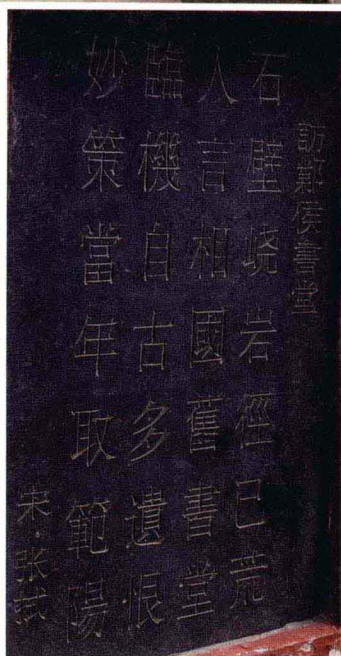 訪鄴侯書堂
石壁峣岩徑已荒
人言相國舊書堂
臨機自古多遺恨
妙策當年取範陽
宋·张拭